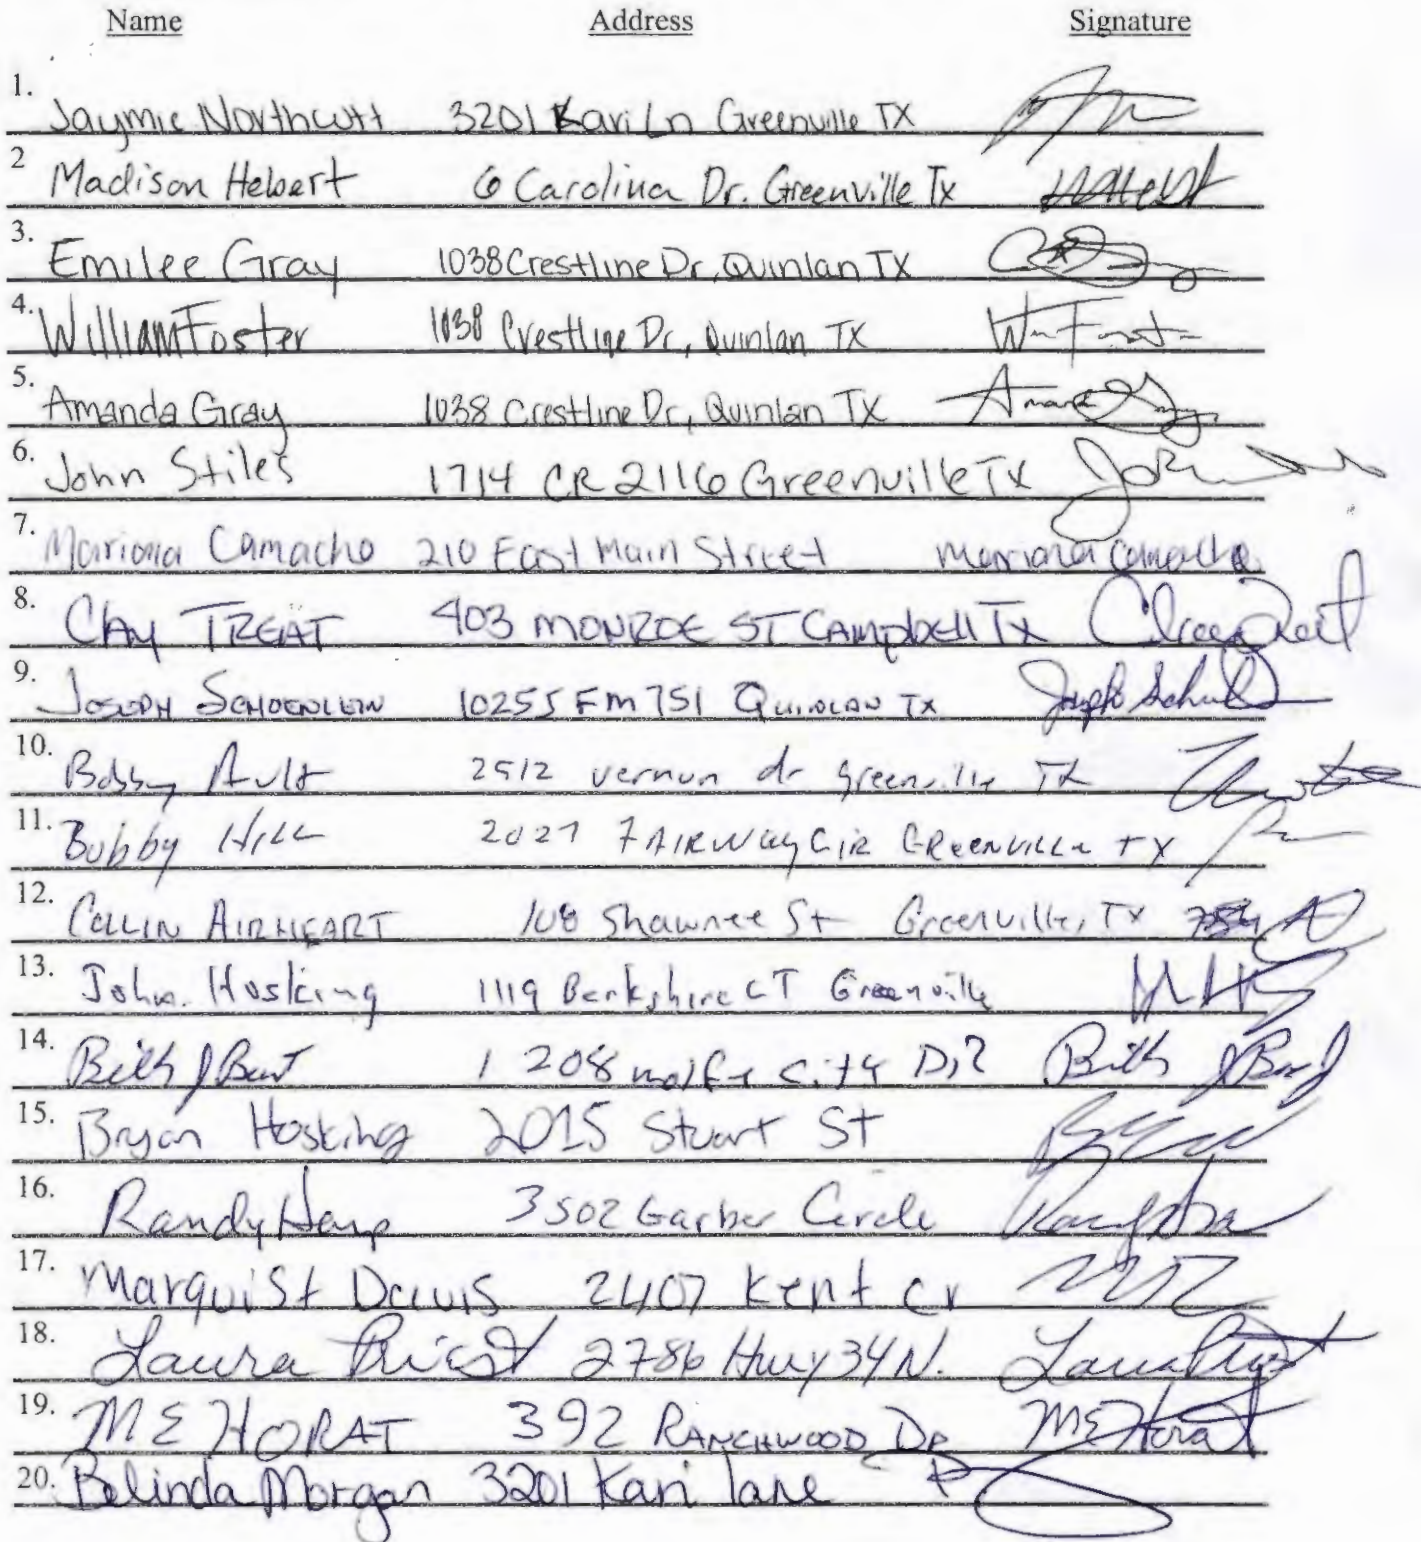 Name Address Signature
1. Jaymie Northcutt 3201 Kari Ln Greenville TX
2 Madison Hebert 6 Carolina Dr. Greenville Tx MHebert
3. Emilee Gray 1038 Crestline Dr, Quinlan TX
4. William Foster 1038 Crestline Dr, Quinlan TX
5. Amanda Gray 1038 Crestline Dr, Quinlan TX
6. John Stiles 1714 CR 2116 Greenville TX
7. Mariana Camacho 210 East Main Street mariana camacho
8. CLAY TREAT 403 MONROE ST CAMPbEll Tx
9. JOSEPH SCHOENLEIN 10255 FM 751 QUINLAN TX
10. Bobby Ault 2512 vernon dr greenville TX
11. Bobby HILL 2027 FAIRWAY CIR GREENVILLE TX
12. COLLIN AIRHEART 108 Shawnee St Greenville, TX
13. John Hosking 1119 Berkshire CT Greenville
14. 1208 wolfe city DR
15. Bryan Hosking 2015 Stuart St
16. Randy 3502 Garber Circle
17. Marquist Davis 2407 Kent cr
18. Laura Priest 2786 Hwy 34 N. Laura Priest
19. ME HORAT 392 RANCHWOOD DR ME Horat
20. Belinda Morgan 3201 Kari lane